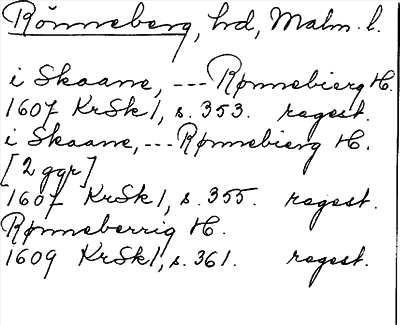 Rönneberg, hd, Malm. l.
i Skaane, --- Rønnebierg H.
1607 KrSk 1, s. 353. regest.
i Skaane, --- Rønnebierg H.
[2 ggr]
1607 KrSk 1, s. 355. regest.
Rønneberrig H.
1609 KrSk 1, s. 361. regest.